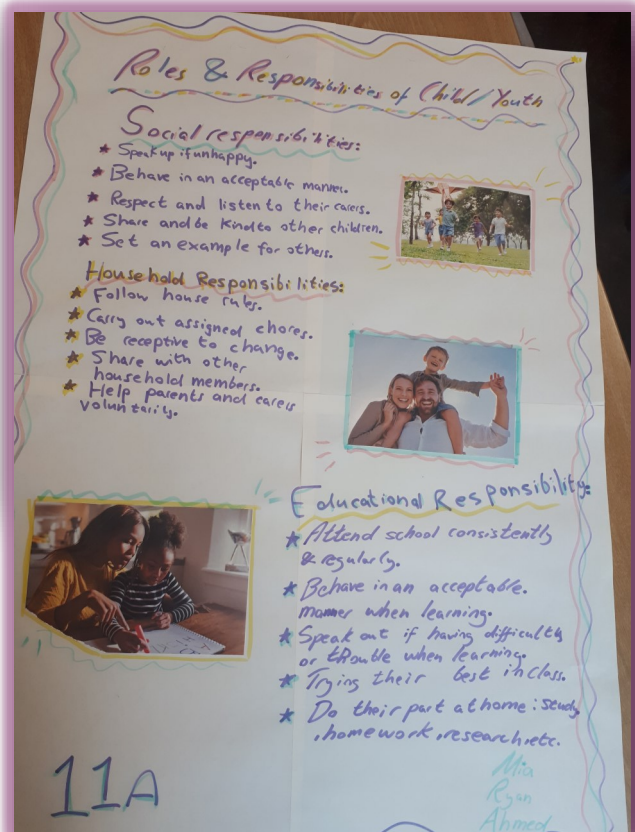 Roles & Responsibilities of Child/Youth
Social responsibilities:
★ Speak up if unhappy.
★ Behave in an acceptable manner.
★ Respect and listen to their carers.
★ Share and be kind to other children.
★ Set an example for others.
Household Responsibilities:
★ Follow house rules.
★ Carry out assigned chores.
★ Be receptive to change.
★ Share with other
household members.
★ Help parents and carers
voluntarily.
Educational Responsibility:
★ Attend school consistently
& regularly.
★ Behave in an acceptable.
manner when learning.
★ Speak out if having difficulty
or trouble when learning.
★ Trying their best in class.
★ Do their part at home: study
, homework, research, etc.
11A
Mia
Ryan
Ahmed